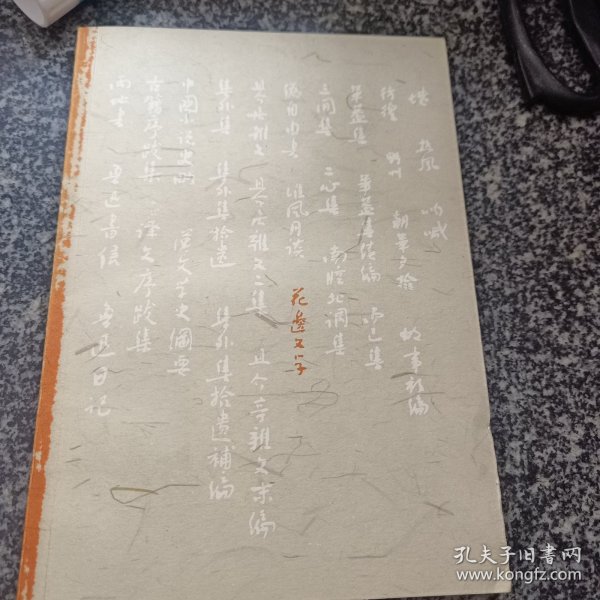 坟 热风 呐喊
彷徨 野草 朝华夕拾 故事新编
华盖集 华盖集续编 而已集
三闲集 二心集 南腔北调集
伪自由书 准风月谈 花邊文学
且介亭雜文 且介亭雜文二集 且介亭雜文末编
集外集 集外集拾遗 集外集拾遗補编
中國小说史略 漢文学史綱要
古籍序跋集 译文序跋集
两地书 鲁迅書信 鲁迅日记
孔夫子旧书网
www.kongfz.com